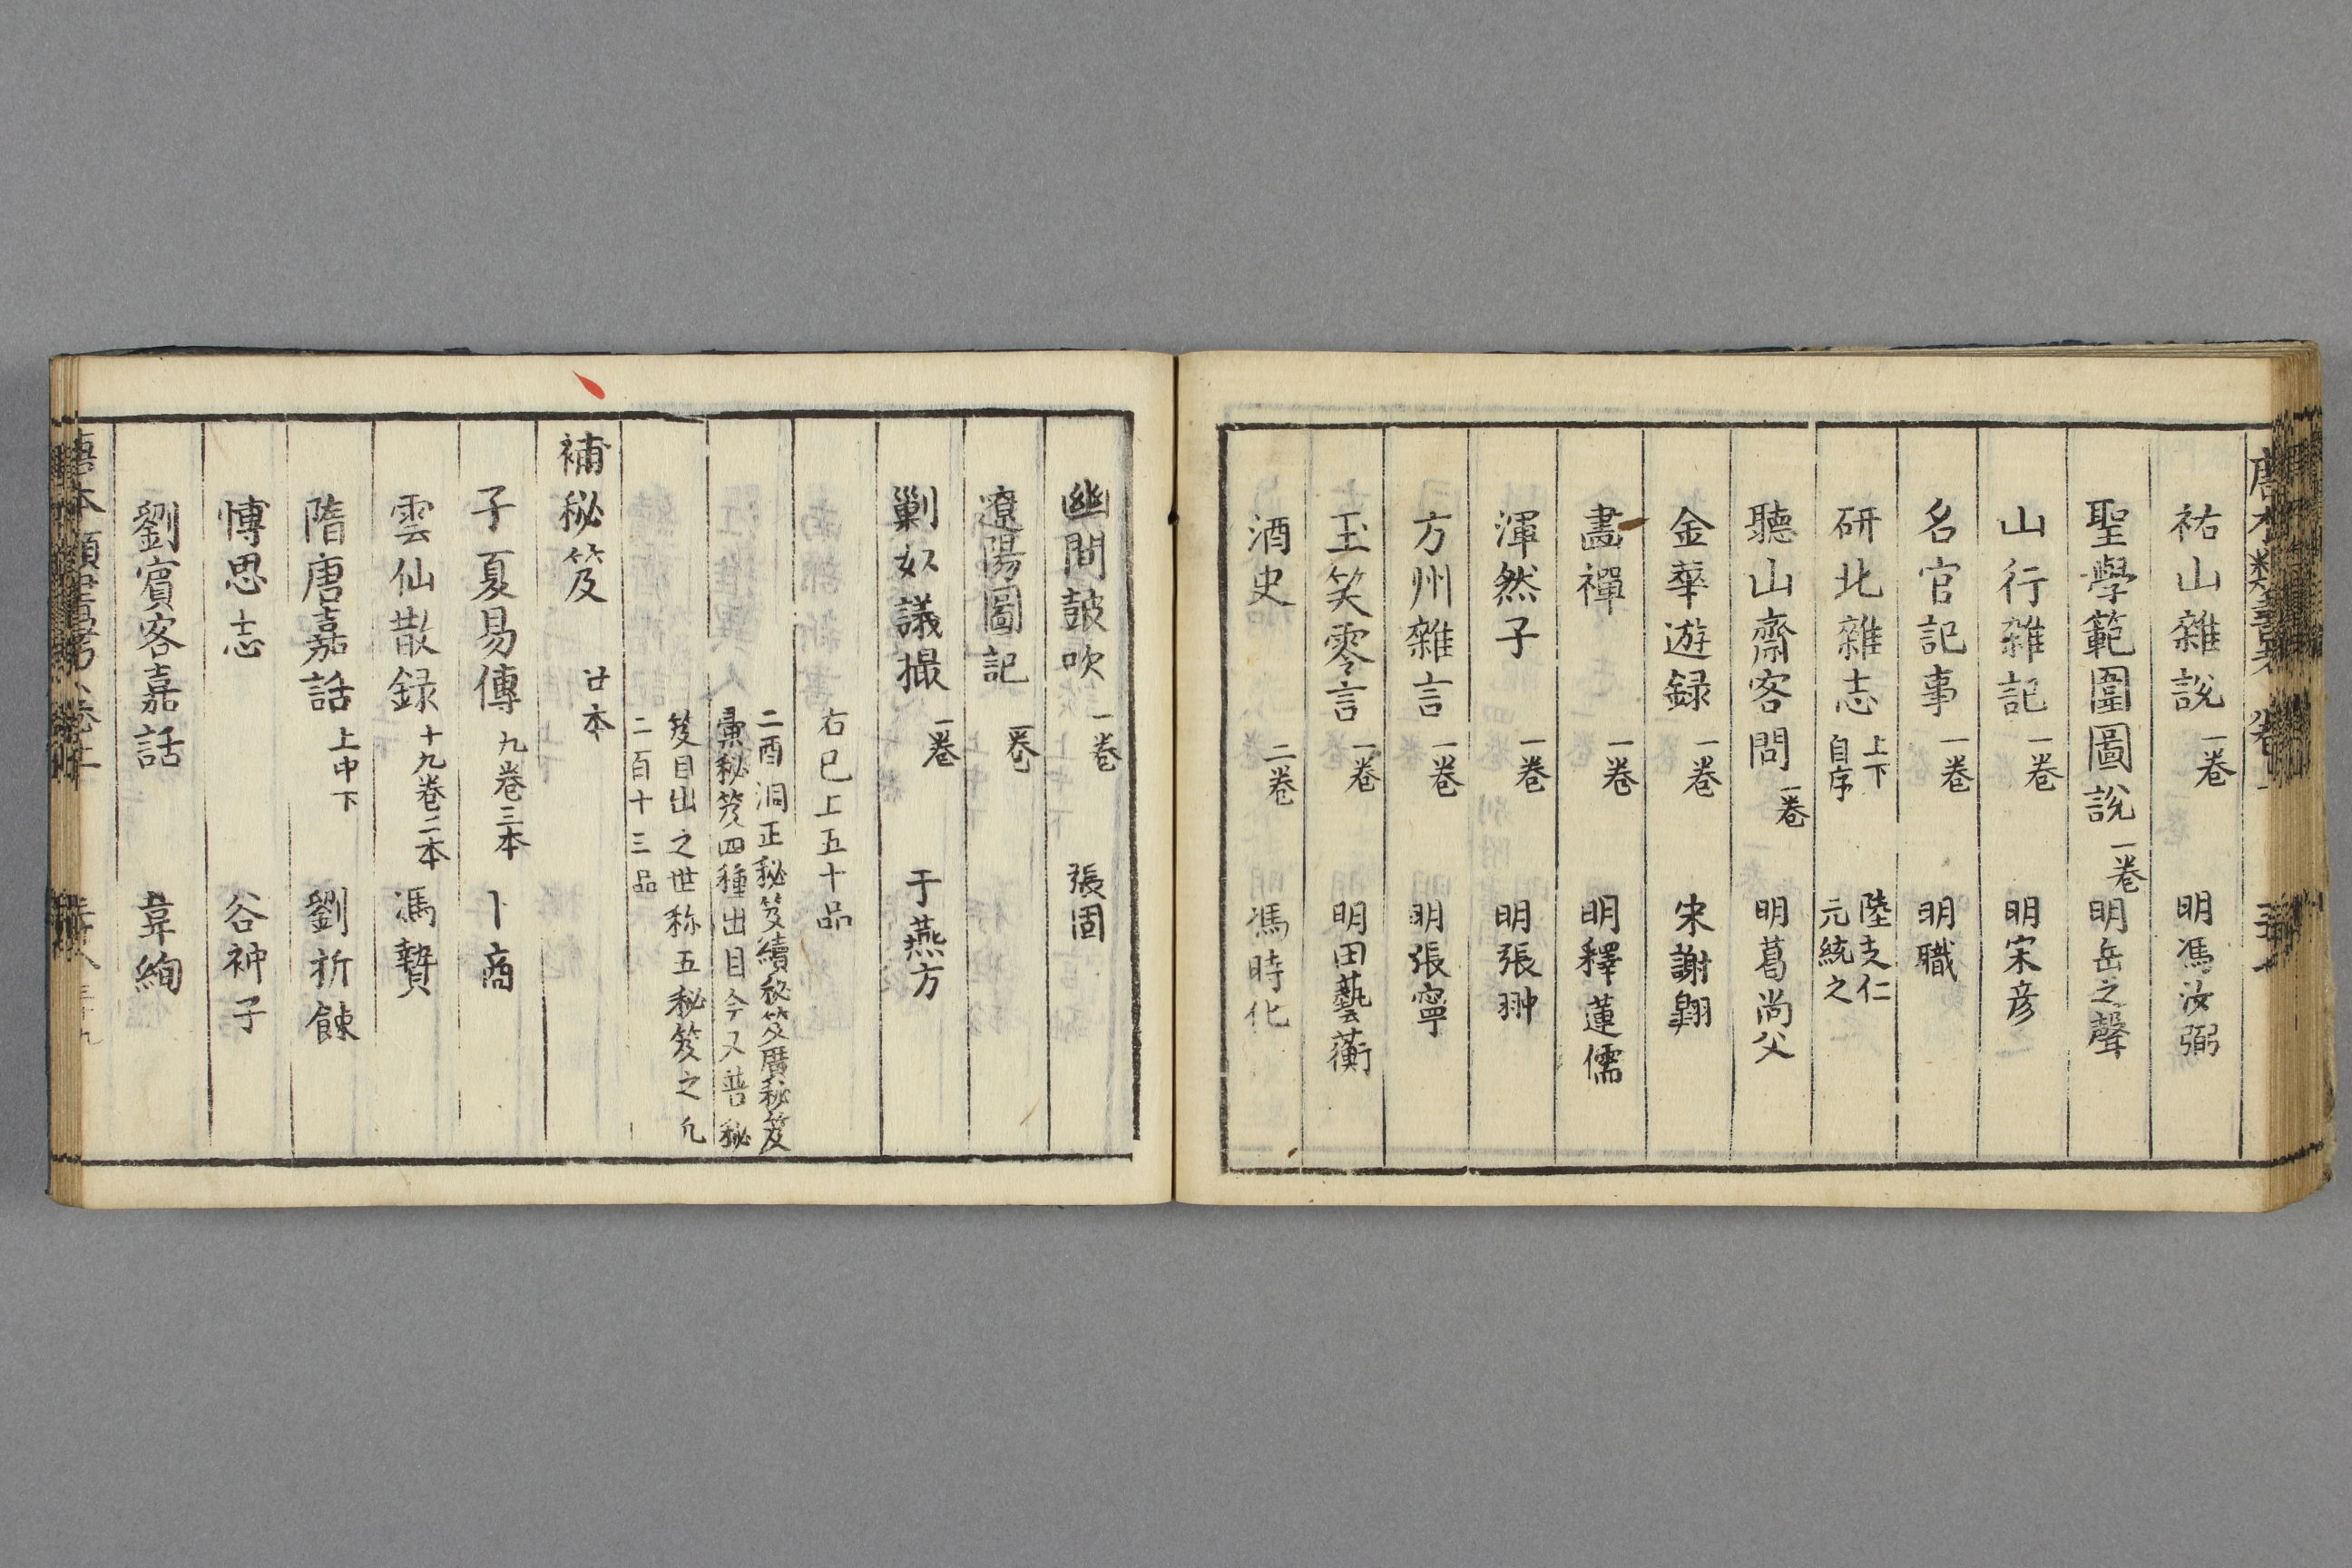 祐山雜説 一巻 明馮汝弼
聖學範圍圖説 一巻 明岳之聲
山行雜記 一巻 明宋彦
名官記事 一巻 明職
研北雜志 上下 自序 陸友仁 元統之
聽山齋客問 一巻 明葛尚父
金華遊録 一巻 宋謝翺
畫禪 一巻 明釋蓮儒
渾然子 一巻 明張翀
方州雜言 一巻 明張寧
玉笑零言 一巻 明田藝蘅
酒史 二巻 明馮時化
幽間鼓吹 一巻 張固
遼陽圖記 一巻
剿奴議撮 一巻 于燕方
右已上五十品
二酉洞正秘笈續秘笈廣秘笈
彙秘笈四種出目今又普秘
笈目出之世称五秘笈之凢
二百十三品
補秘笈 廿本
子夏易傳 九巻三本 卜商
雲仙散録 十九巻二本 馮贄
隋唐嘉話 上中下 劉折餗
博思志 谷神子
劉賓客嘉話 韋絢